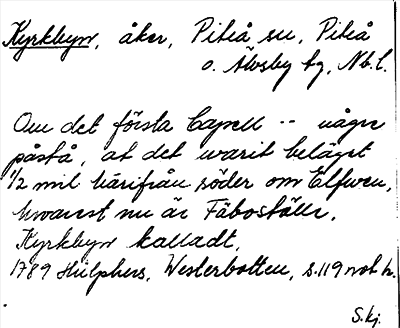 Kyrkbyn, åker, Piteå sn, Piteå
o. Älvsby tg, Nb.l.
Om det första Capell -- någre
påstå, at det warit beläget
1/2 mil härifrån söder om Elfwen,
hwarest nu är Fäboställe,
Kyrkbyn kalladt.
1789 Hülphers, Westerbotten, s. 119 not h.
S.kj.